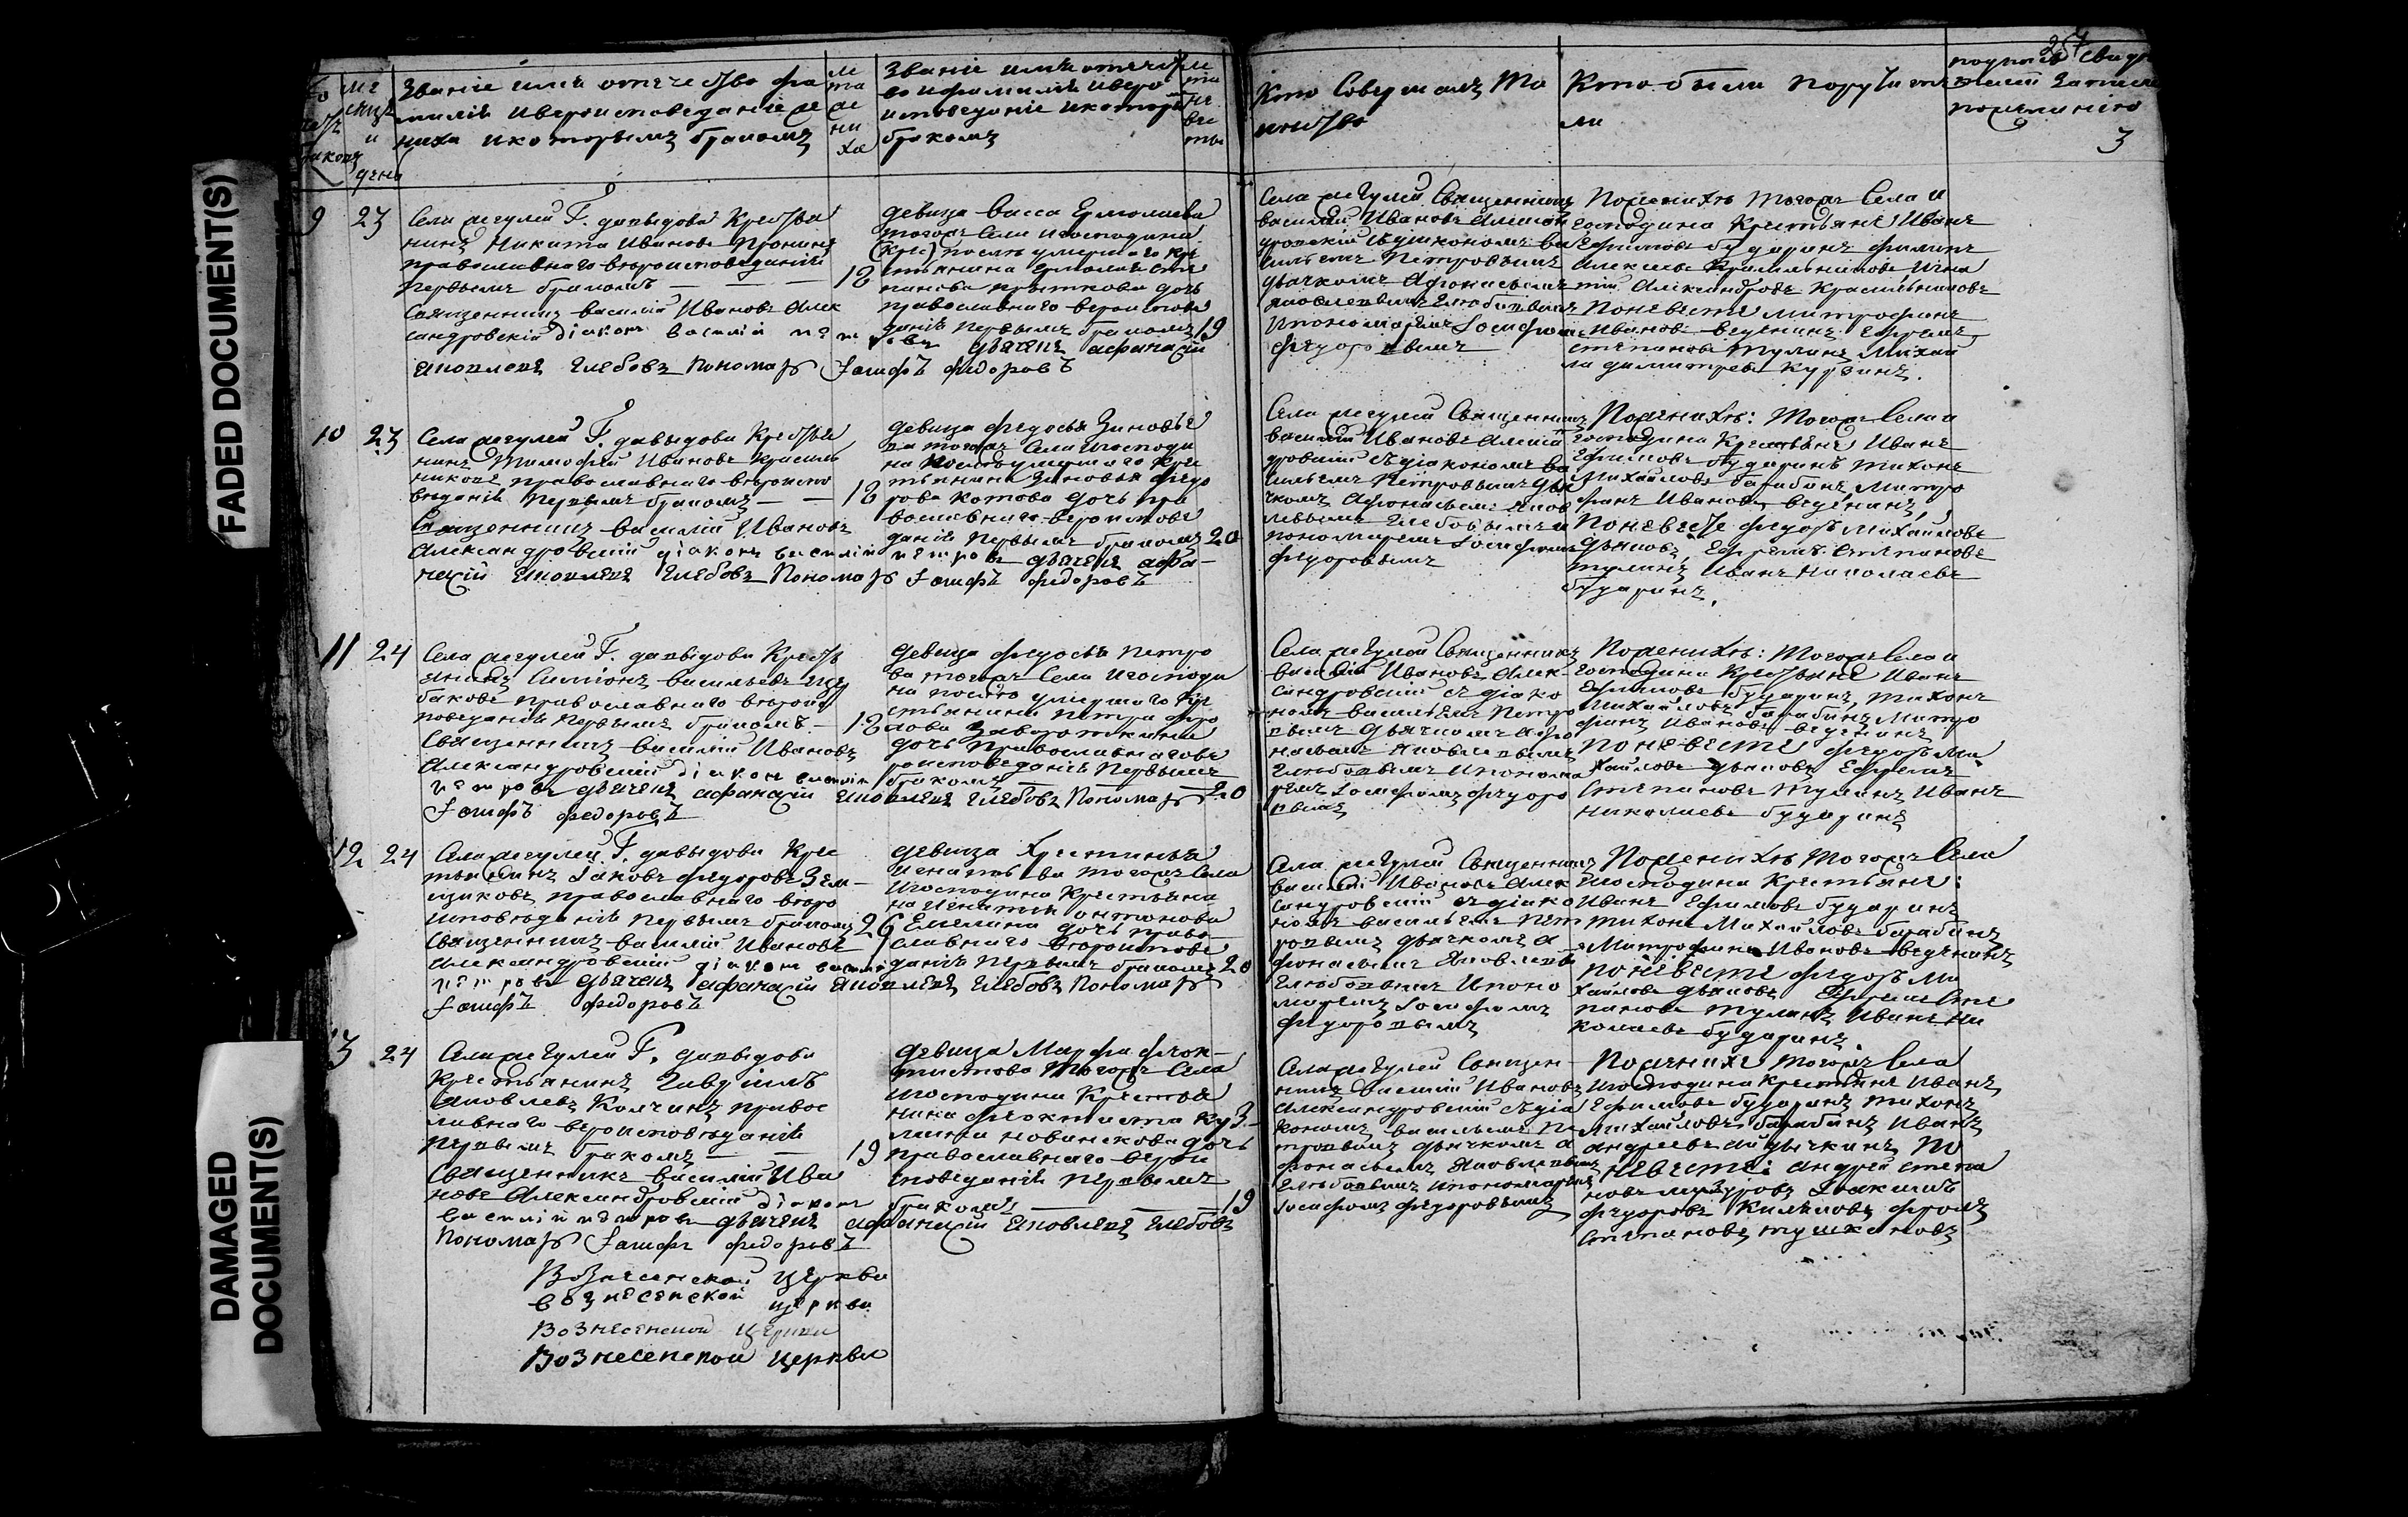 FADED DOCUMENT(S)
DAMAGED DOCUMENT(S)
257
3
Званіе имя отечество фа
милія и вероисповеданіе же
ниха и которымъ бракомъ
ле
та
же
ни
ха
Званіе имя отечест
во и фамилия и веро
исповедание и которы
бракомъ
ле
та
не
ве
сты
Кто Совершалъ Та
инство
Кто были поручите
ли
9 23
Села Жегулей Г. давыдова Крестья
нинъ Никита Ивановъ Пронинъ
православнаго вероисповеданія
первымъ бракомъ 18
Священникъ Василій Ивановъ Алек
сандровскій діаконъ василій петровъ дьячекъ афанасій
Яковлевъ Глебовъ Пономарь Іосифъ федоровъ
девица васса Ермолаева
тогожъ Села и господина
после умершаго кре
стьянина Ермолая сте
панова дочь
православнаго вероиспове
данія первымъ бракомъ 19
Села Жегулей Священникъ
василій Ивановъ Алексан
дровскій съ діакономъ ва
сильемъ Петровымъ
дьячкомъ Афонасьемъ
Яковлевымъ Глебовымъ
и пономаремъ Іосифомъ
Федоровымъ
По женихе тогожъ Села и
господина Крестьяне Иванъ
Ефимовъ бударинъ филипъ
Алексеевъ Красильниковъ Игна
тій Александровъ Красильниковъ
По невесте Митрофанъ
Ивановъ веденинъ Ефремъ
степановъ тулинъ Михай
ла димитревъ Курзинъ.
10 23
Села Жегулей Г. давыдова Крестья
нинъ Тимофей Ивановъ Красиль
никовъ православнаго вероиспо
веданія первымъ бракомъ 18
Священникъ василій Ивановъ
Александровскій діаконъ василій петровъ дьячекъ афа-
насій Яковлевъ Глебовъ Пономарь Іосифъ федоровъ
девица федосья Зиновье
ва тогожъ Села и господи
на после умершаго кре
стьянина Зиновья федо
рова Котова дочь пра
вославнаго вероиспове
данія первымъ бракомъ 20
Села Жегулей Священникъ
василій Ивановъ Алексан
дровскій съ діакономъ ва
сильемъ Петровымъ дья
чкомъ Афонасьемъ Яков
левымъ Глебовымъ и
пономаремъ Іосифомъ
Федоровымъ
По женихе: тогожъ Села и
господина Крестьяне Иванъ
Ефимовъ бударинъ тихонъ
Михайловъ барабинъ Митро
фанъ Ивановъ веденинъ,
По невесте федоръ Михайловъ
дьяковъ, Ефремъ Степановъ
тулинъ Иванъ Николаевъ
бударинъ.
11 24
Села Жегулей Г. давыдова Кресть
янинъ Симіонъ васильевъ
баковъ православнаго вероис
поведанія первымъ бракомъ 18
Священникъ василій Ивановъ
Александровскій діаконъ василій
петровъ дьячекъ афанасій Яковлевъ Глебовъ Пономарь
Іосифъ федоровъ
девица федосья Петро
ва тогожъ Села и господи
на после умершаго кре
стьянина Петра
дочь православнаго ве
роисповеданія первымъ
бракомъ 20
Села Жегулей Священникъ
василій Ивановъ Алек
сандровскій съ діако
номъ васильемъ Петро
вымъ дьячкомъ Афо
насьемъ Яковлевымъ
Глебовымъ и понома
ремъ Іосифомъ Федоро
вымъ
По женихе: тогожъ Села и
господина Крестьяне Иванъ
Ефимовъ бударинъ, тихонъ
Михайловъ барабинъ Митро
фанъ Ивановъ веденинъ
По невесте федоръ Ми
хайловъ дьяковъ Ефремъ
Степановъ тулинъ Иванъ
Николаевъ бударинъ
12 24
Села Жегулей Г. давыдова Крес
тьянинъ Іаковъ федоровъ Зем-
щиковъ православнаго веро
исповеданія первымъ бракомъ 26
Священникъ василій Ивановъ
Александровскій діаконъ василій
петровъ дьячекъ афанасій Яковлевъ Глебовъ Пономарь
Іосифъ федоровъ
девица Христинья
Игнатьева тогожъ Села
и господина Крестьяни
на Игнатья антонова
Емелина дочь право
славнаго вероиспове
данія первымъ бракомъ 20
Села Жегулей Священникъ
василій Ивановъ Алек
сандровскій съ діако
номъ васильемъ Пет
ровымъ дьячкомъ А
фонасьемъ Яковлевы
Глебовымъ и поно
маремъ Іосифомъ
Федоровымъ
По женихе тогожъ Села
и господина Крестьяне:
Иванъ Ефимовъ бударинъ
тихонъ Михайловъ барабинъ
Митрофанъ Ивановъ веденинъ
По невесте федоръ Ми
хайловъ дьяковъ Ефремъ Сте
пановъ тулинъ Иванъ Ни
колаевъ бударинъ
13 24
Села Жегулей Г. давыдова
Крестьянинъ
Яковлевъ Колчинъ правос
лавнаго вероисповеданія
первымъ бракомъ 19
Священникъ василій Ива
новъ Александровскій діаконъ
василій петровъ дьячекъ афанасій Яковлевъ Глебовъ
Пономарь Іосифъ федоровъ
девица Марфа феок-
тистова тогожъ Села
и господина Крестья
нина феоктиста куз
мина новинскова дочь
православнаго верои
споведанія первымъ
бракомъ 19
Села Жегулей Священ
никъ василій Ивановъ
Александровскій съ діа
кономъ васильемъ Пе
тровымъ дьячкомъ А
фонасьемъ Яковлевымъ
Глебовымъ и пономаремъ
Іосифомъ Федоровымъ
По женихе тогожъ Села
и господина крестьяне Иванъ
Ефимовъ бударинъ тихонъ
Михайловъ барабинъ Иванъ
андреевъ По
невесте: андрей степа
новъ Іоакимъ
федоровъ фролъ
Степановъ тушкановъ
Вознесенской церкви
вознесенской церкви
Вознесенской церкви
Вознесенской церкви